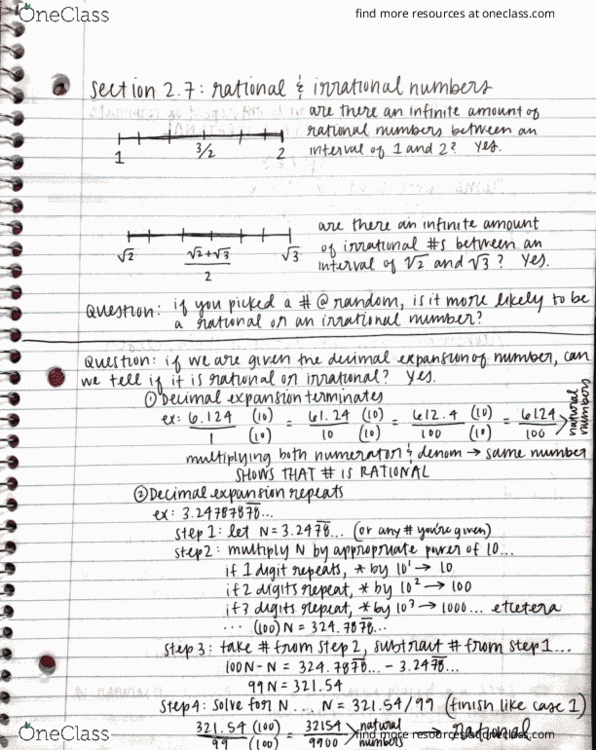 OneClass
find more resources at oneclass.com
section 2.7: rational & irrational numbers
are there an infinite amount of
rational numbers between an
interval of 1 and 2? yes.
1 3/2 2
are there an infinite amount
of irrational #s between an
interval of √2 and √3? yes.
√2 (√2+√3)/2 √3
Question: if you picked a # @ random, is it more likely to be
a rational or an irrational number?
Question: if we are given the decimal expansion of number, can
we tell if it is rational or irrational? yes.
① Decimal expansion terminates
ex: 6.124/1 (10)/(10) = 61.24/10 (10)/(10) = 612.4/100 (10)/(10) = 6124/100 > natural numbers
multiplying both numerator & denom → same number
SHOWS THAT # IS RATIONAL
② Decimal expansion repeats
ex: 3.24787878...
step 1: let N = 3.2478... (or any # you're given)
step 2: multiply N by appropriate power of 10...
if 1 digit repeats, * by 10¹ → 10
if 2 digits repeat, * by 10² → 100
if 3 digits repeat, * by 10³ → 1000... etcetera
... (100) N = 324.7878...
step 3: take # from step 2, subtract # from step 1...
100N - N = 324.7878... - 3.2478...
99N = 321.54
step 4: solve for N... N = 321.54/99 (finish like case 1)
321.54/99 (100)/(100) = 32154/9900 > natural numbers → rational
OneClass
find more resources at oneclass.com